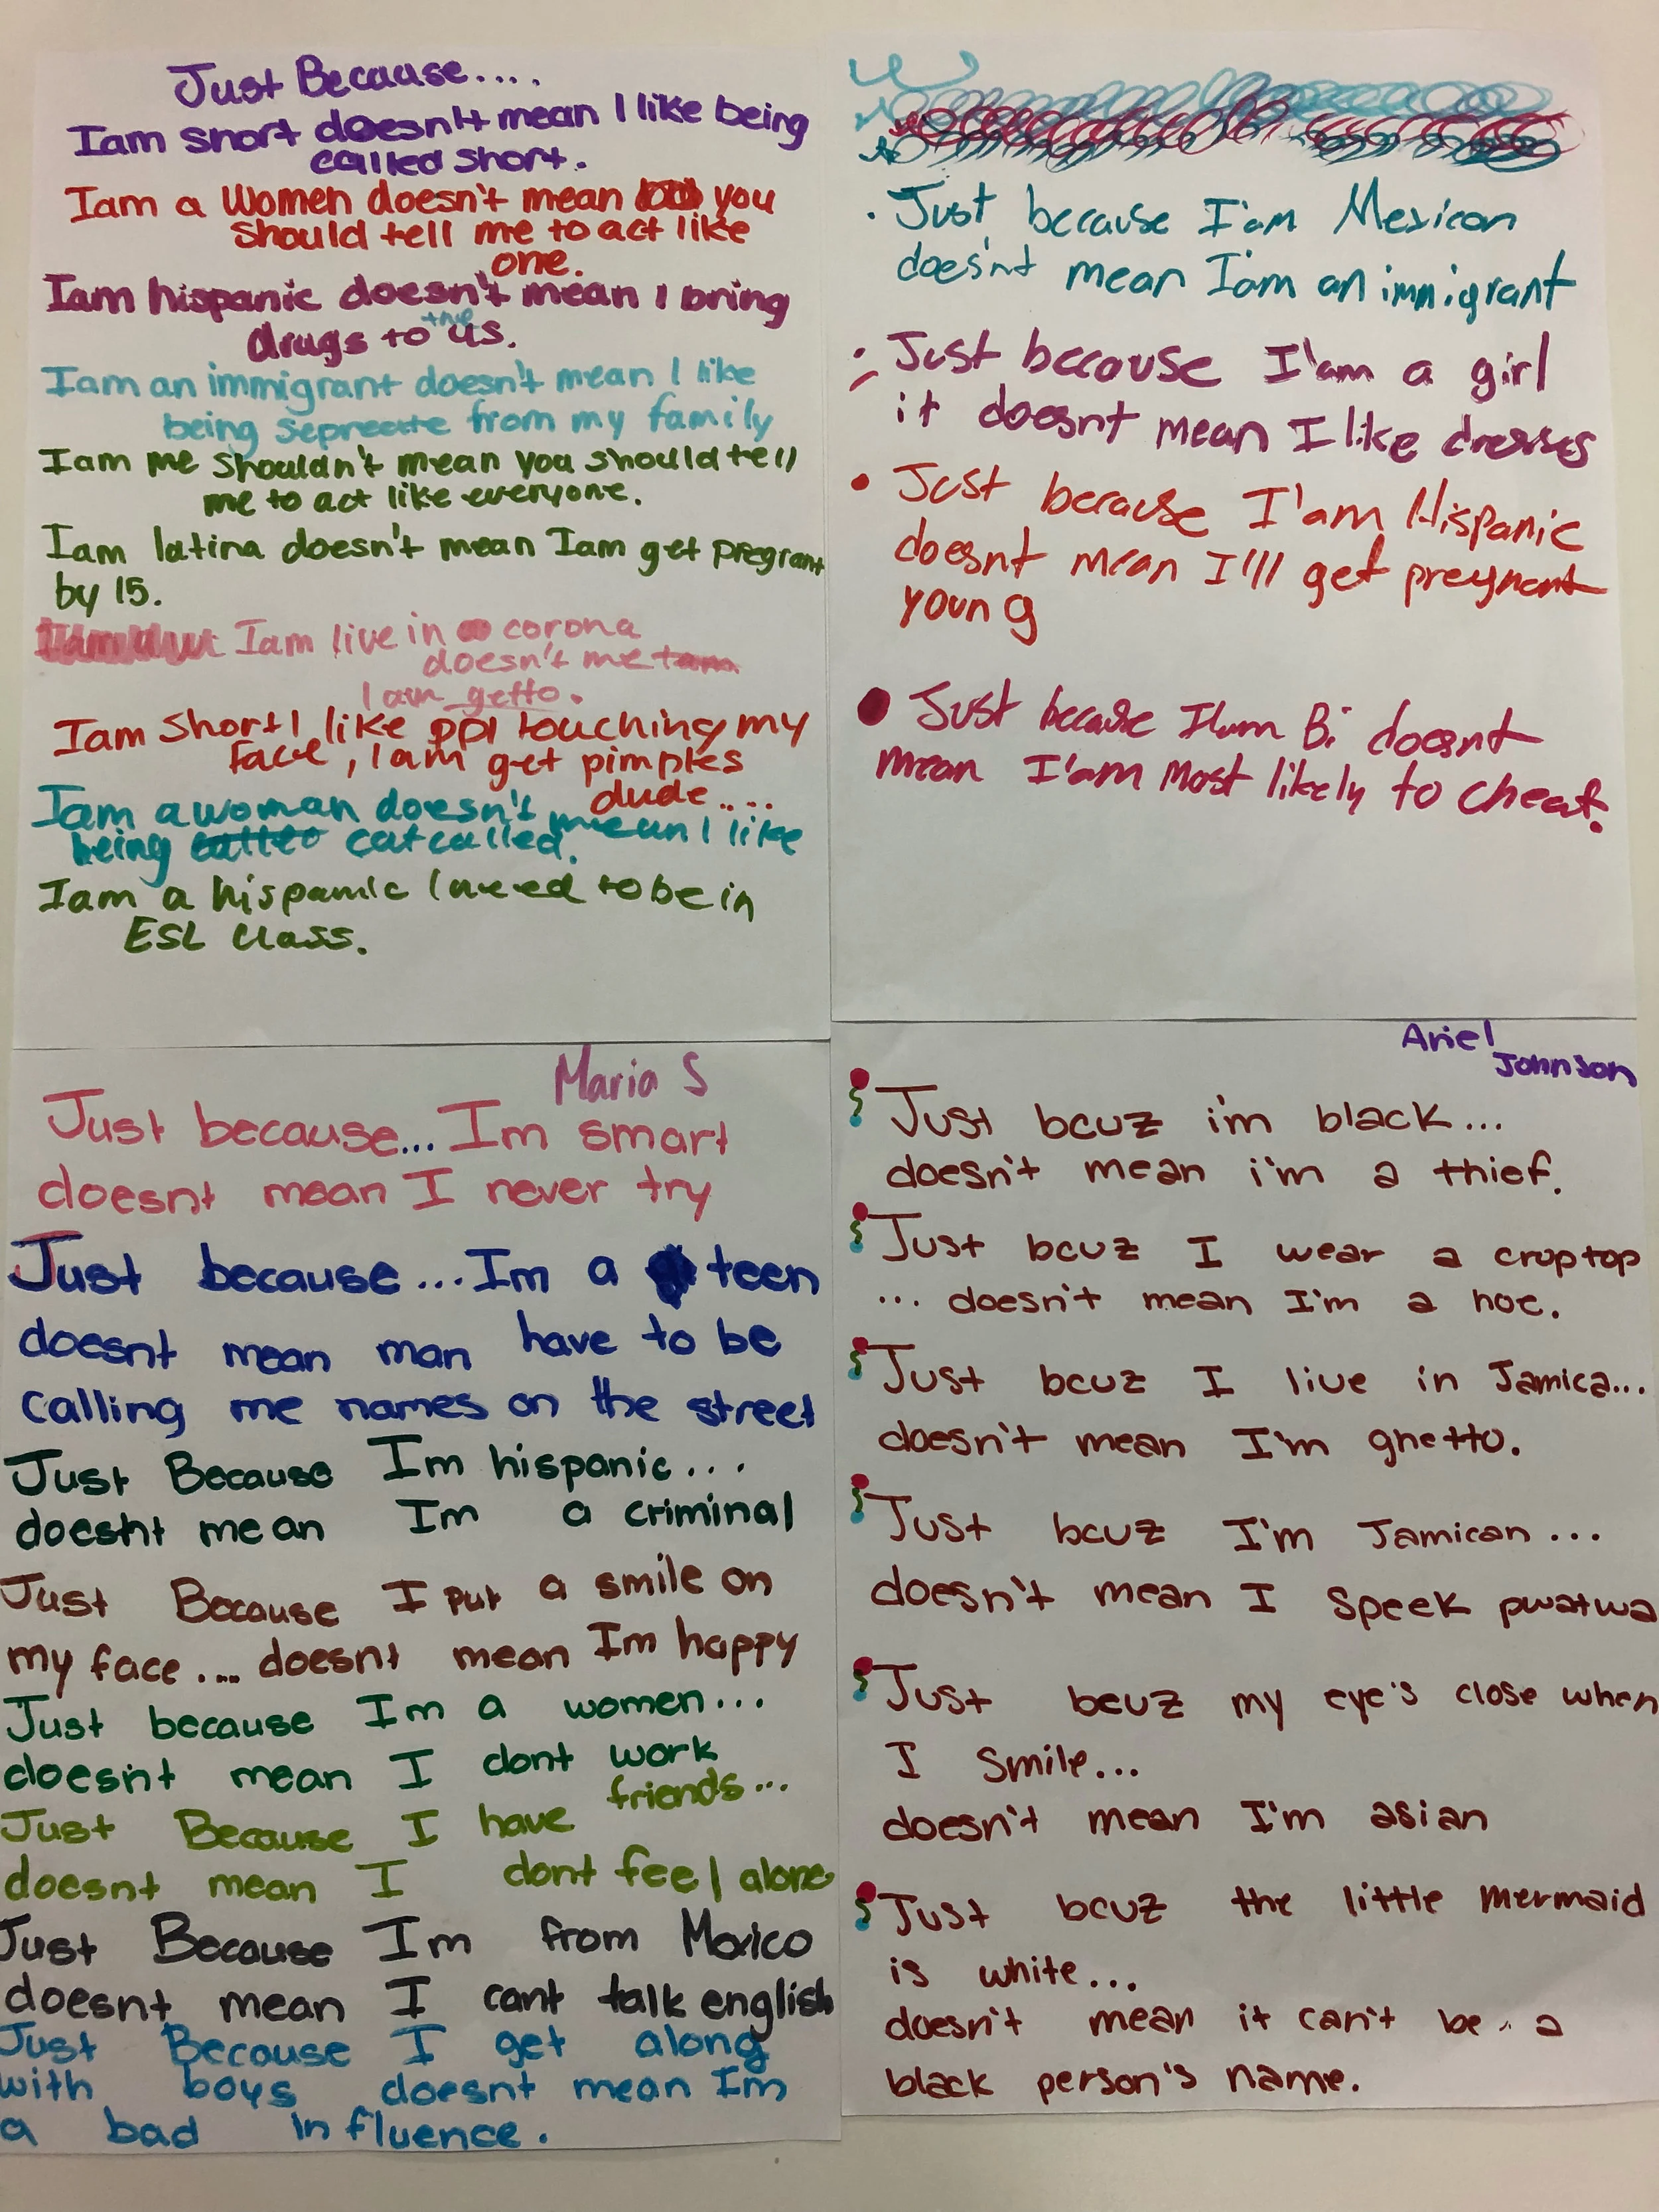 Just Because....
Iam short doesn't mean I like being
called short.
Iam a Women doesn't mean you
should tell me to act like
one.
Iam hispanic doesn't mean I bring
drugs to the us.
Iam an immigrant doesn't mean I like
being sepreate from my family
Iam me shouldn't mean you should tell
me to act like everyone.
Iam latina doesn't mean Iam get pregrant
by 15.
Iam live in corona
doesn't me
I am getto.
Iam short I like ppl touching my
face, I am get pimples
dude....
Iam a woman doesn't mean I like
being catcalled.
Iam a hispanic I need to be in
ESL class.
• Just because I'am Mexican
does'nt mean I'am an immigrant
• Just because I'am a girl
it doesnt mean I like dresses
• Just because I'am Hispanic
doesnt mean I'll get preynant
young
• Just because Bi doesnt
mean I'am most likely to cheat.
Maria S
Just because... Im smart
doesnt mean I never try
Just because... Im a teen
doesnt mean man have to be
calling me names on the street
Just Because Im hispanic...
doesnt mean Im a criminal
Just Because I put a smile on
my face.... doesnt mean Im happy
Just because Im a women...
doesnt mean I dont work
Just Because I have friends...
doesnt mean I dont feel alone
Just Because Im from Mexico
doesnt mean I cant talk english
Just Because I get along
with boys doesnt mean Im
a bad influence.
Ariel
Johnson
Just bcuz i'm black...
doesn't mean i'm a thief.
Just bcuz I wear a croptop
... doesn't mean I'm a hoe.
Just bcuz I live in Jamica...
doesn't mean I'm ghetto.
Just bcuz I'm Jamican...
doesn't mean I speek pwatwa
Just bcuz my eye's close when
I smile...
doesn't mean I'm asian
Just bcuz the little mermaid
is white...
doesn't mean it can't be a
black person's name.